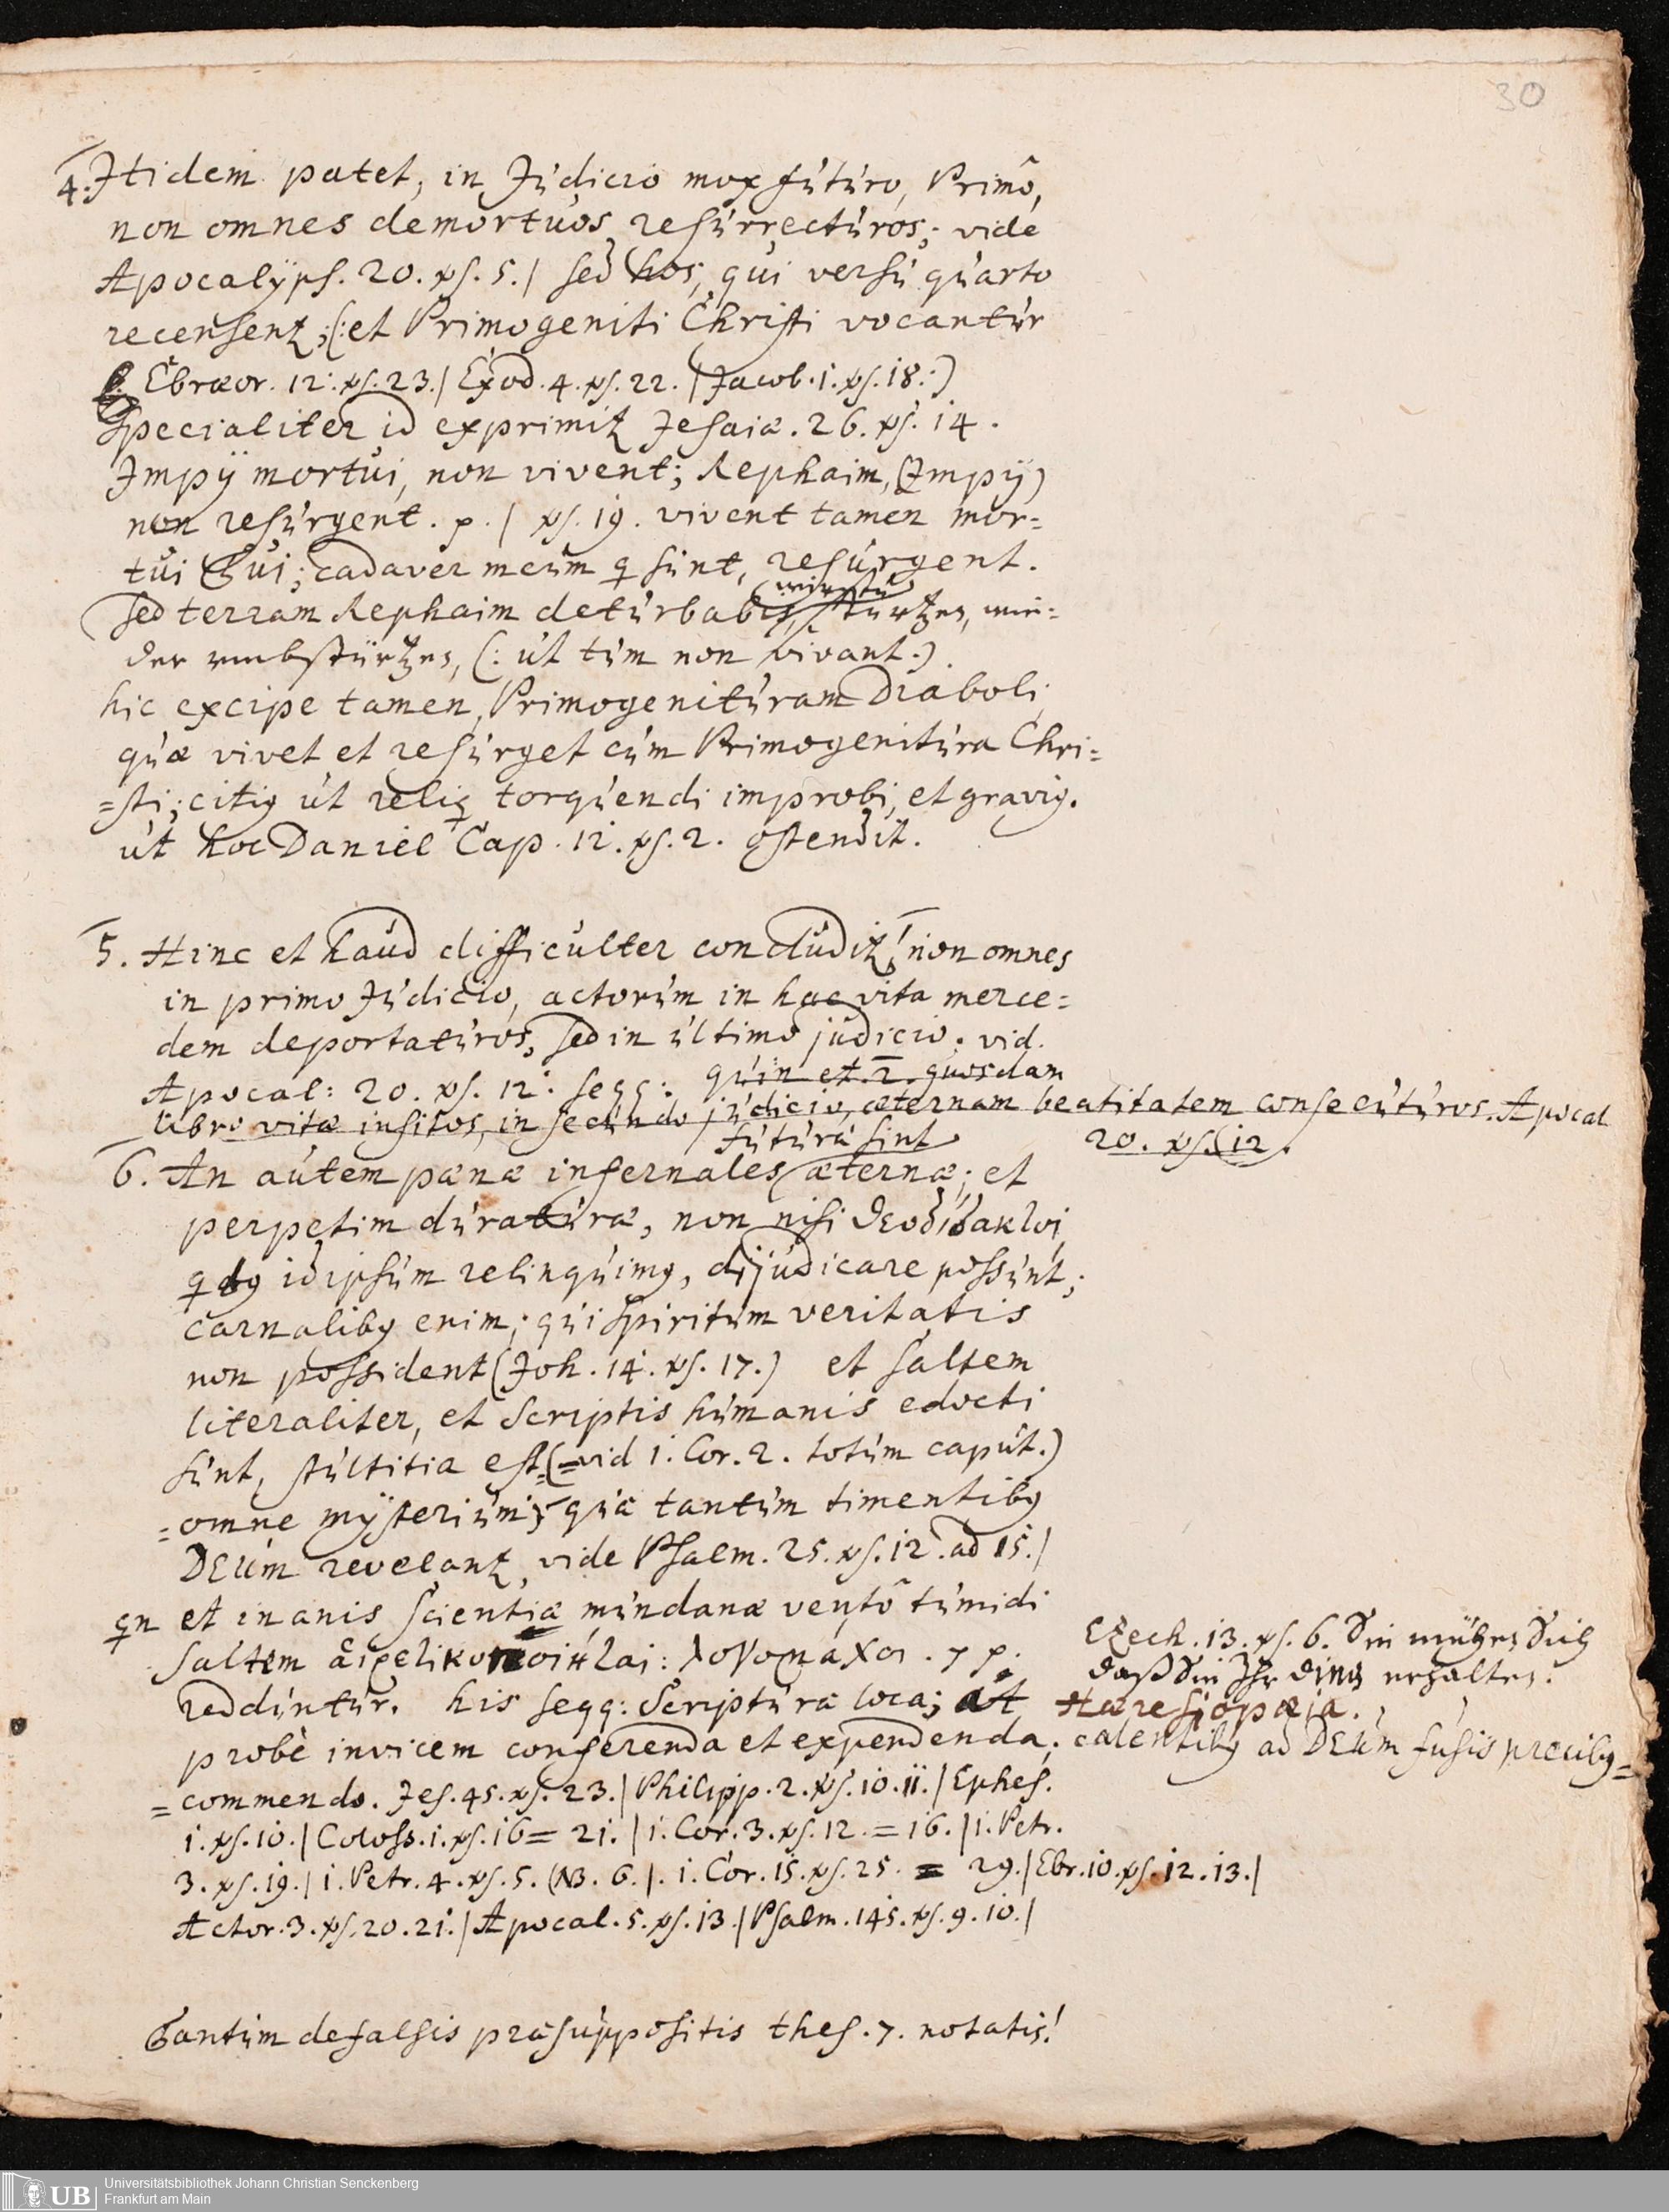 30
4. Itidem patet, in Judicio mox futuro, Primô,
non omnes demortuos resurrecturos; vide
Apocalÿps. 20. vs. 5. / sed hos, qui versu quarto
recensentr; (: et Primogeniti Christi vocantur
Ebræor. 12. vs. 23. / Exod. 4. vs. 22. / Jacob. 1. vs. 18. :)
Specialiter id exprimitr Jesaiæ. 26. vs. 14.
Impij mortui, non vivent; Rephaim, (Impij)
non resurgent. p. / vs. 19. vivent tamen mor=
tui Tui; cadaver meum q sunt, resurgent.
sed terram Rephaim deturbabis, stürtzen, wie=
der umbstürtzen, (: ut tum non vivant :)
hic excipe tamen, Primogenituram Diaboli,
quæ vivet et resurget cum Primogenitura Chri=
=sti; citiq ut reliq torquendi improbi, et graviq.
ut hoc Daniel Cap. 12. vs. 2. ostendit.
5. Hinc et haud difficulter concluditr! non omnes
in primo Judicio, actorum in hac vita merce=
dem deportaturos, sed in ultimo judicio. vid.
Apocal: 20. vs. 12. seqq: quin et 2. quosdam
libro vitæ insitos, in secundo judicio, æternam beatitatem consecuturos. Apocal
20. vs. 12.
futuræ sint
6. An autem pænæ infernales æternæ; et
perpetim duraturæ, non nisi θεοδίδακτοι
qbq id ipsum relinquimq, dijudicare possunt;
carnalibq enim; qui Spiritum veritatis
non possident (Joh. 14. vs. 17.) et saltem
literaliter, et Scriptis humanis edocti
sunt, stultitia est (= vid 1. Cor. 2. totum caput.)
= omne mÿsterium; quæ tantum timentibq
DEUm revelantr, vide Psalm. 25. vs. 12. ad 15. /
qn et inanis scientiæ mundanæ ventô tumidi
saltem αἱρετικοποιηταὶ: λογομάχοι. 7 p.
Ezech. 13. vs. 6.
Hæresiopæia.
reddúntur. his seqq: Scripturæ loca; at
probè invicem conferenda et expendenda; calentibq ad DEUm fusis precibq =
= commendo. Jes. 45. vs. 23. / Philipp. 2. vs. 10. 11. / Ephes.
1. vs. 10. / Coloss. 1. vs. 16 = 21. / 1. Cor. 3. vs. 12. = 16. / 1. Petr.
3. vs. 19. / 1. Petr. 4. vs. 5. (NB. 6. /. 1. Cor. 15. vs. 25. = 29. / Ebr. 10. vs. 12. 13. /
Actor. 3. vs. 20. 21. / Apocal. 5. vs. 13. / Psalm. 145. vs. 9. 10. /
Tantum de falsis præsuppositis thes. 7. notatis!
UB Universitätsbibliothek Johann Christian Senckenberg
Frankfurt am Main